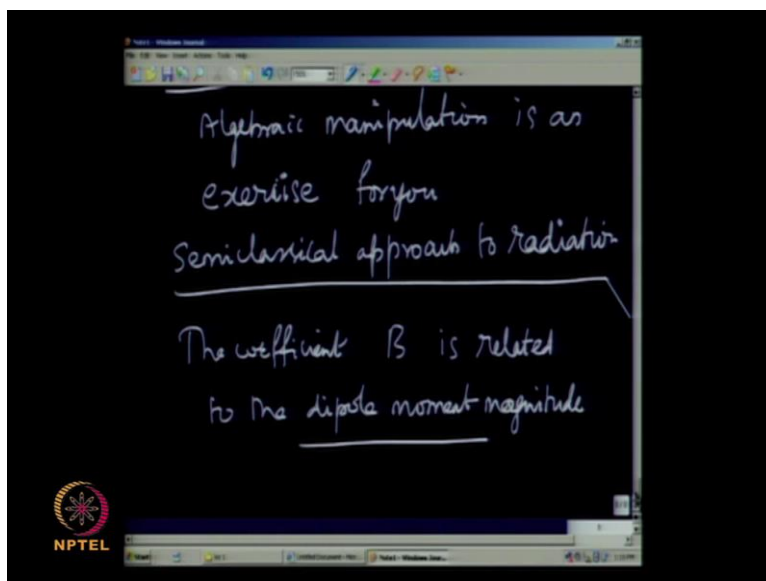 Note1 - Windows Journal
File Edit View Insert Actions Tools Help
Algebraic manipulation is as
exercise for you
Semiclassical approach to radiation
The coefficient B is related
to the dipole moment magnitude
NPTEL